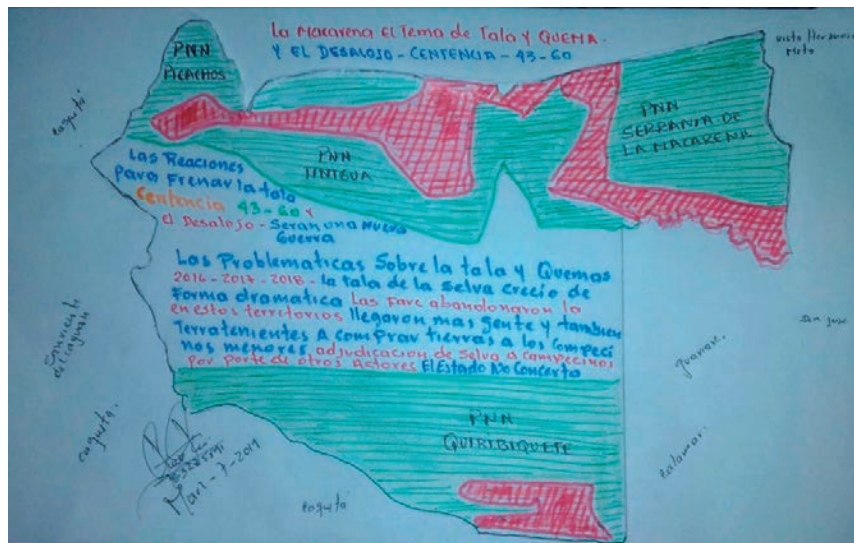 La Macarena El Tema de Tala y QUEMA.
Y EL DESALOJO - CENTENCIA - 43-60
vista Hermosa
Meta
PNN
PICACHOS
PNN
SERRANIA DE
LA MACARENA
PNN
TINIGUA
Las Reaciones
para Frenar la tala
Centencia 43-60 y
el Desalojo - Seran una Nueva
Guerra
Las Problematicas Sobre la tala y Quemas
2016 - 2017 - 2018 - la tala de la Selva crecio de
Forma dramatica Las Farc abandonaron la
en estos territorios llegaron mas gente y tambien
Terratenientes A comprar tierras a los Campeci
nos menores, adjudicacion de Selva a campecinos
por parte de otros Actores El Estado No Concerto
San Jose
guaviare.
PNN
CHIRIBIQUETE
calamar.
Mar - 7 - 2019
caqueta